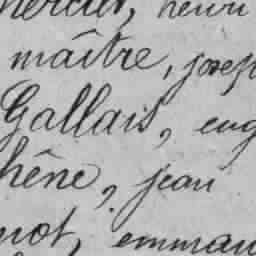 mercier, henri
maître, josep
Gallais, eug
hêne, jean
not, emman